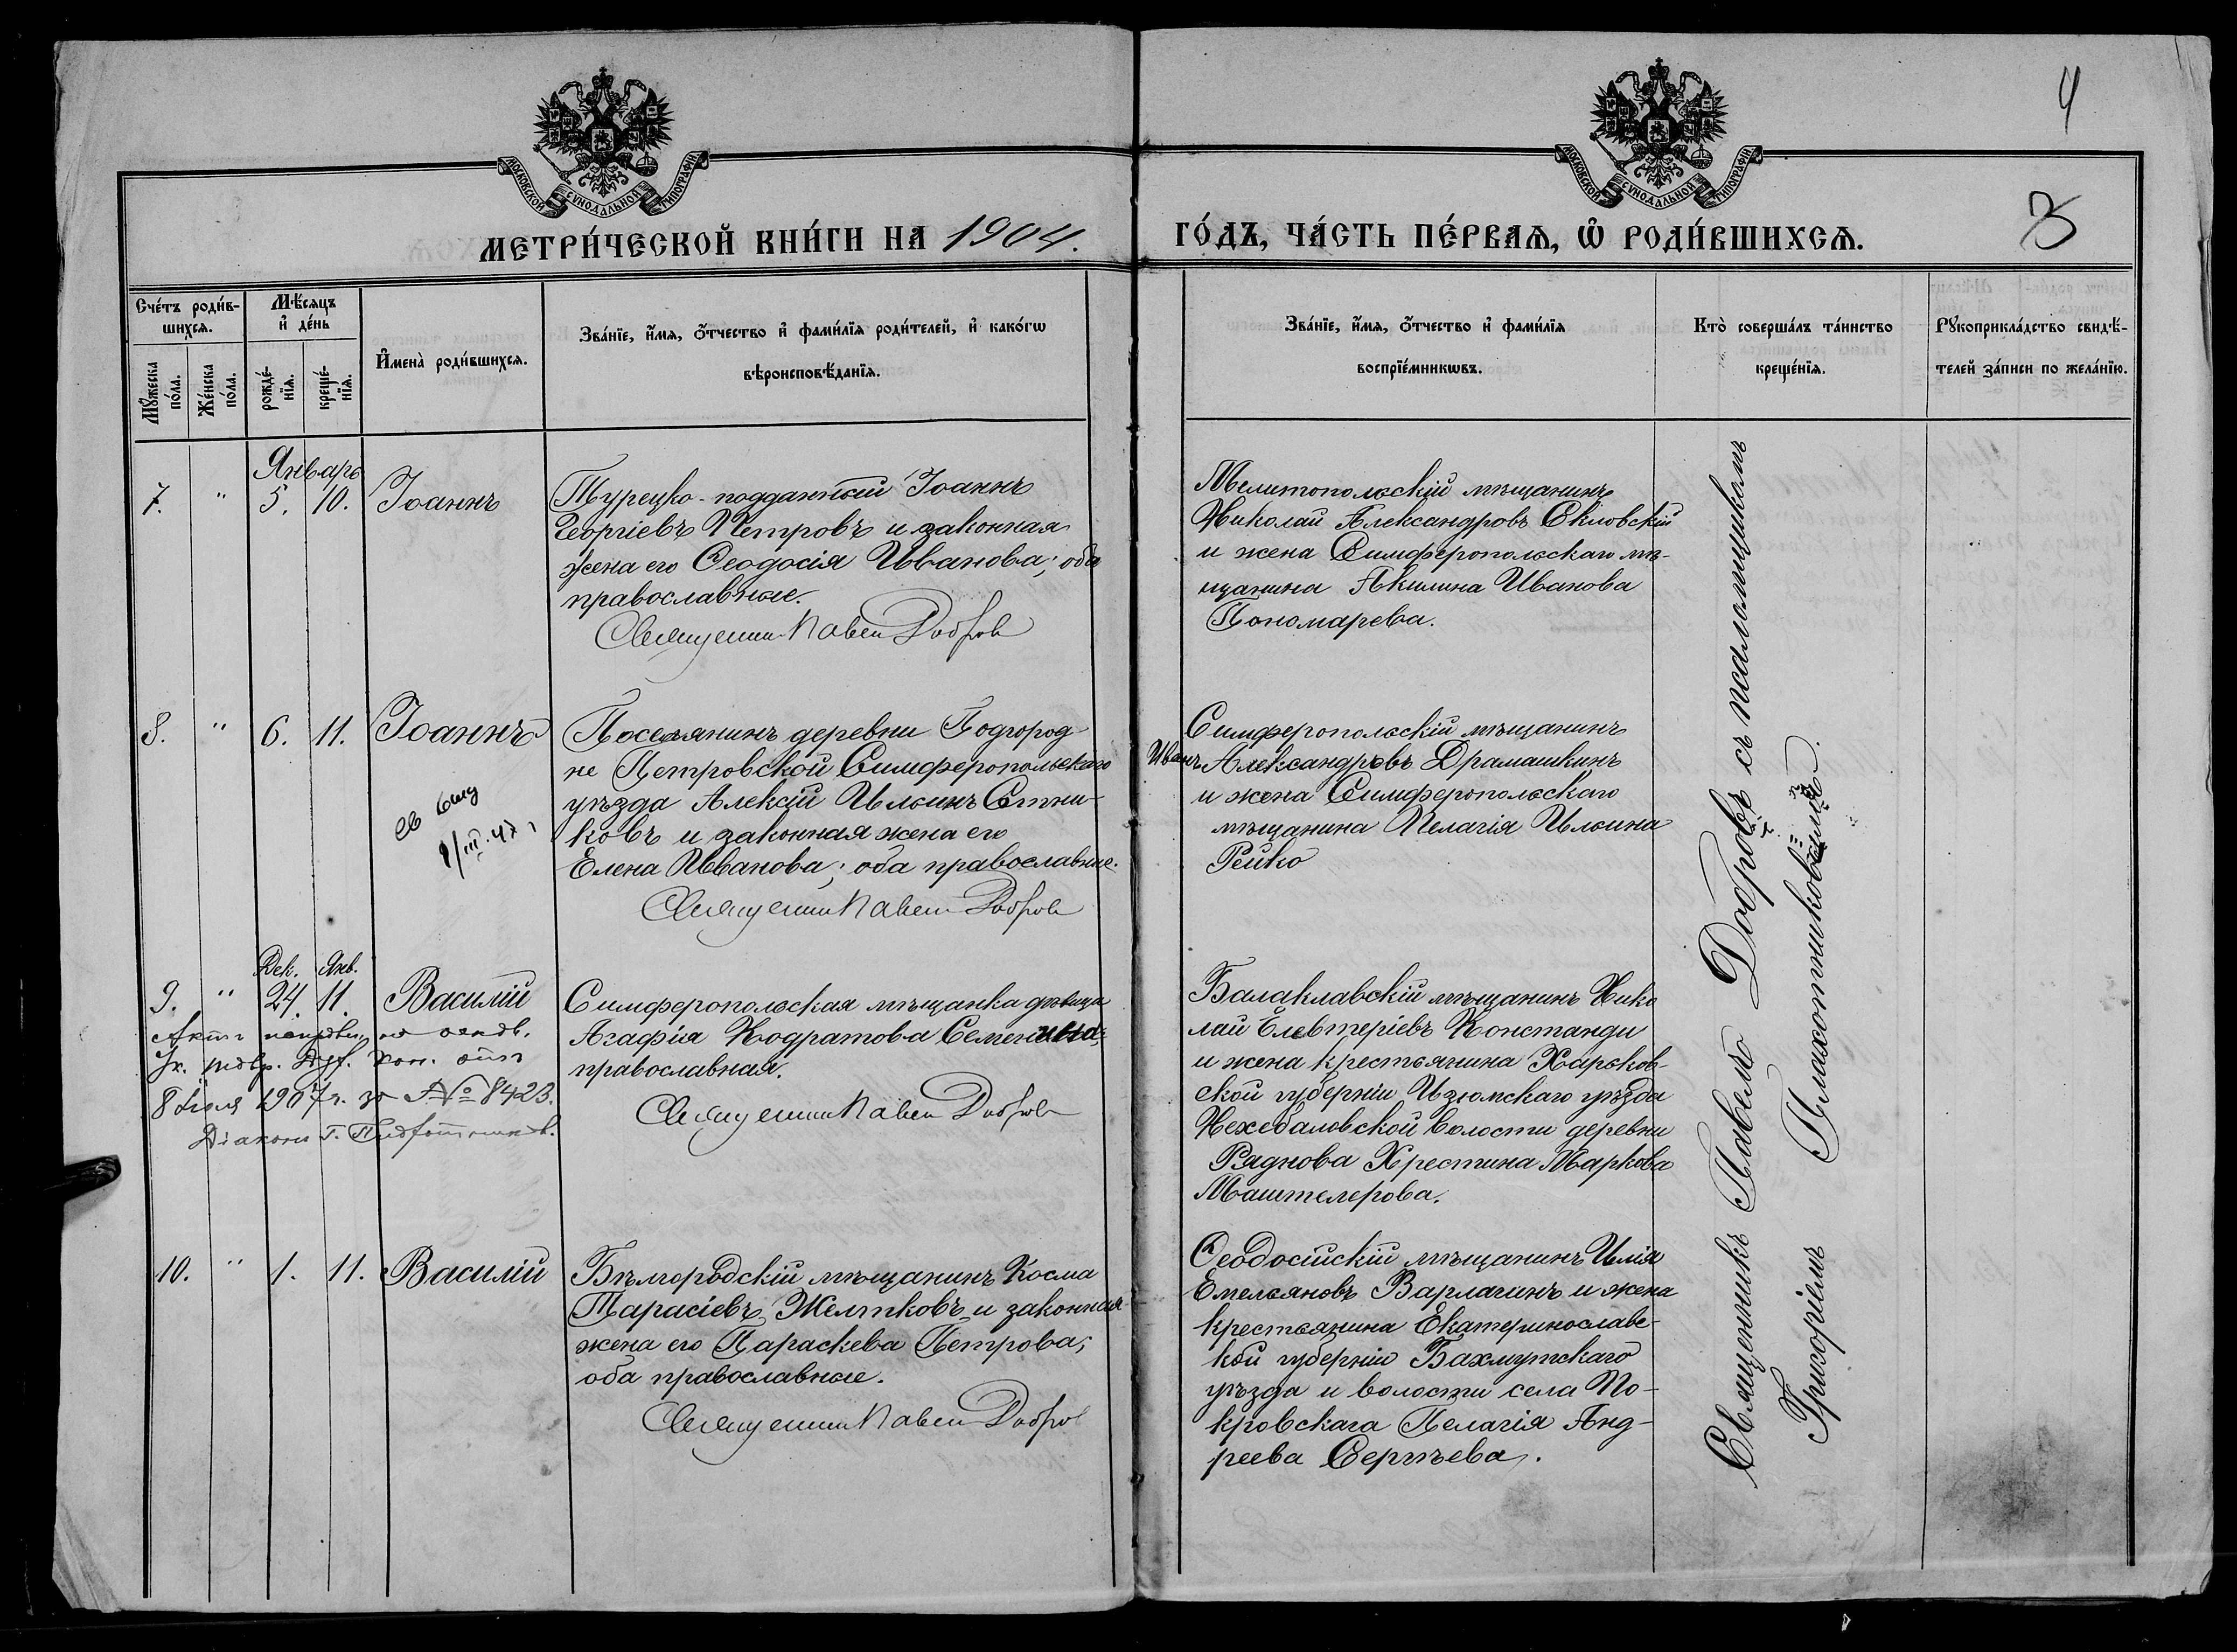 4
3
МОСКОВСКОЙ СѴНОДАЛЬНОЙ ТИПОГРАФІИ.
МОСКОВСКОЙ СѴНОДАЛЬНОЙ ТИПОГРАФІИ.
МЕТРИ́ЧЕСКОЙ КНИ́ГИ НА 1904.
ГО́ДЪ, ЧА́СТЬ ПЕ́РВАЯ, Ѡ РОДИ́ВШИХСЯ.
Сче́тъ роди́в-
шихся.
Мѣ́сяцъ
и де́нь
Мꙋ́жеска
по́ла.
Же́нска
по́ла.
рожде́-
нїя.
креще́-
нїя.
Имена̀ роди́вшихся.
Зва́нїе, и́мя, ѻ́тчество и фами́лїя роди́телей, и како́гѡ
вѣроисповѣ́данїя.
Зва́нїе, и́мя, ѻ́тчество и фами́лїя
воспрїе́мникѡвъ.
Кто̀ соверша́лъ та́инство
креще́нїя.
Рꙋкоприкла́дство свидѣ́-
телей за́писи по жела́нїю.
Январь
7. " 5. 10. Іоаннъ
Турецко-подданный Іоаннъ
Георгіевъ Петровъ и законная
жена его Ѳеодосія Иванова; оба
православные.
Священник Павел Добров
Мелитопольскій мѣщанинъ
Николай Александровъ
и жена Симферопольскаго мѣ-
щанина Акилина Иванова
Пономарева.
8. " 6. 11. Іоаннъ
Поселянинъ деревни Подгород
не Петровской Симферопольскаго
уѣзда Алексій Ильинъ Ситни-
ковъ и законная жена его
Елена Иванова; оба православные.
Священник Павел Добров
Симферопольскій мѣщанинъ
Иванъ Александровъ Драмашкинъ
и жена Симферопольскаго
мѣщанина Пелагія Ильина
Рейко
Дек. Янв.
9. " 24. 11. Василій
8 Іюля 1907 г. за № 8423.
Діаконъ Г.
Симферопольская мѣщанка дѣвица
Агафія Кодратова Семенова;
православная.
Священник Павел Добров
Балаклавскій мѣщанинъ Нико
лай Елевтеріевъ Константи
и жена крестьянина Харьков-
ской губерніи Изюмскаго уѣзда
волости деревни
Ряднова Христина Маркова
Маштелерова.
10. " 1. 11. Василій
Бѣлгородскій мѣщанинъ Косма
Тарасіевъ Желтковъ и законная
жена его Параскева Петрова;
оба православные.
Священник Павел Добров
Ѳеодосійскій мѣщанинъ Илія
Емельяновъ Варлагинъ и жена
крестьянина Екатеринославс-
кой губерніи Бахмутскаго
уѣзда и волости села По-
кровскага Пелагія Анд-
реева Сергѣева.
Священникъ Павелъ Добровъ съ псаломщикомъ
Григоріемъ Плахотниковымъ.